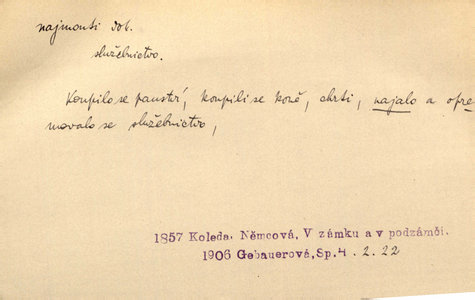 najmouti dok.
služebnictvo.
Koupilo se panství, koupili se koně, chrti, najalo a opre
movalo se služebnictvo,
1857 Koleda. Němcová, V zámku a v podzámčí.
1906 Gebauerová, Sp. 4. 2. 22